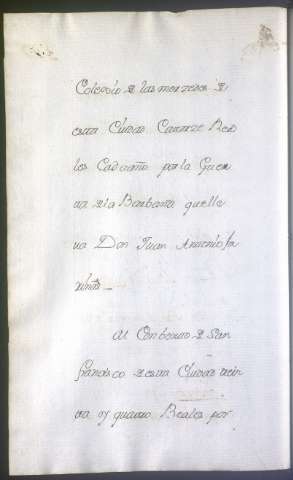 Colegio de las mercedes de
esta Ciudad Catorze Rea
les Cada año por la Guer
ta de la Barbara que lle
va Don Juan Antonio

Al Conbento de San
fran.co de esta Ciudad trein
ta y quatro Reales por